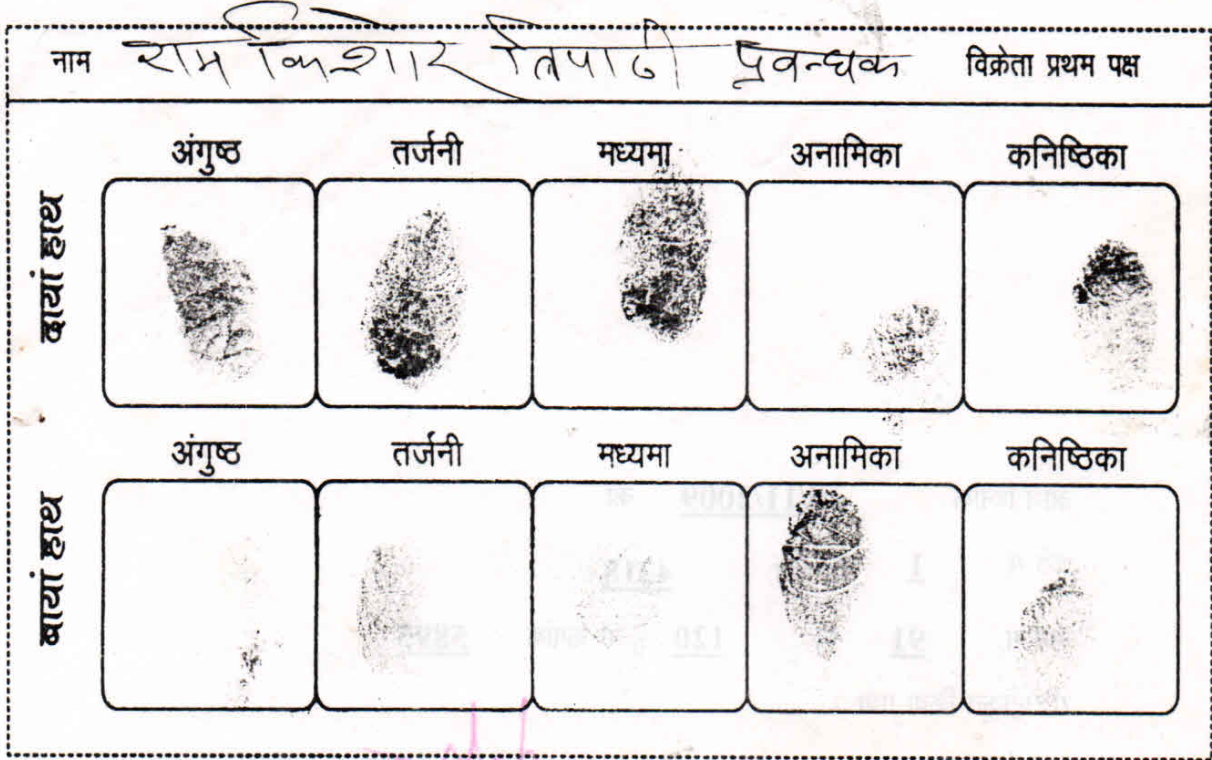 नाम राम किशोर त्रिपाठी प्रवन्धक विक्रेता प्रथम पक्ष
अंगुष्ठ तर्जनी मध्यमा अनामिका कनिष्ठिका
दायां हाथ
अंगुष्ठ तर्जनी मध्यमा अनामिका कनिष्ठिका
बायां हाथ